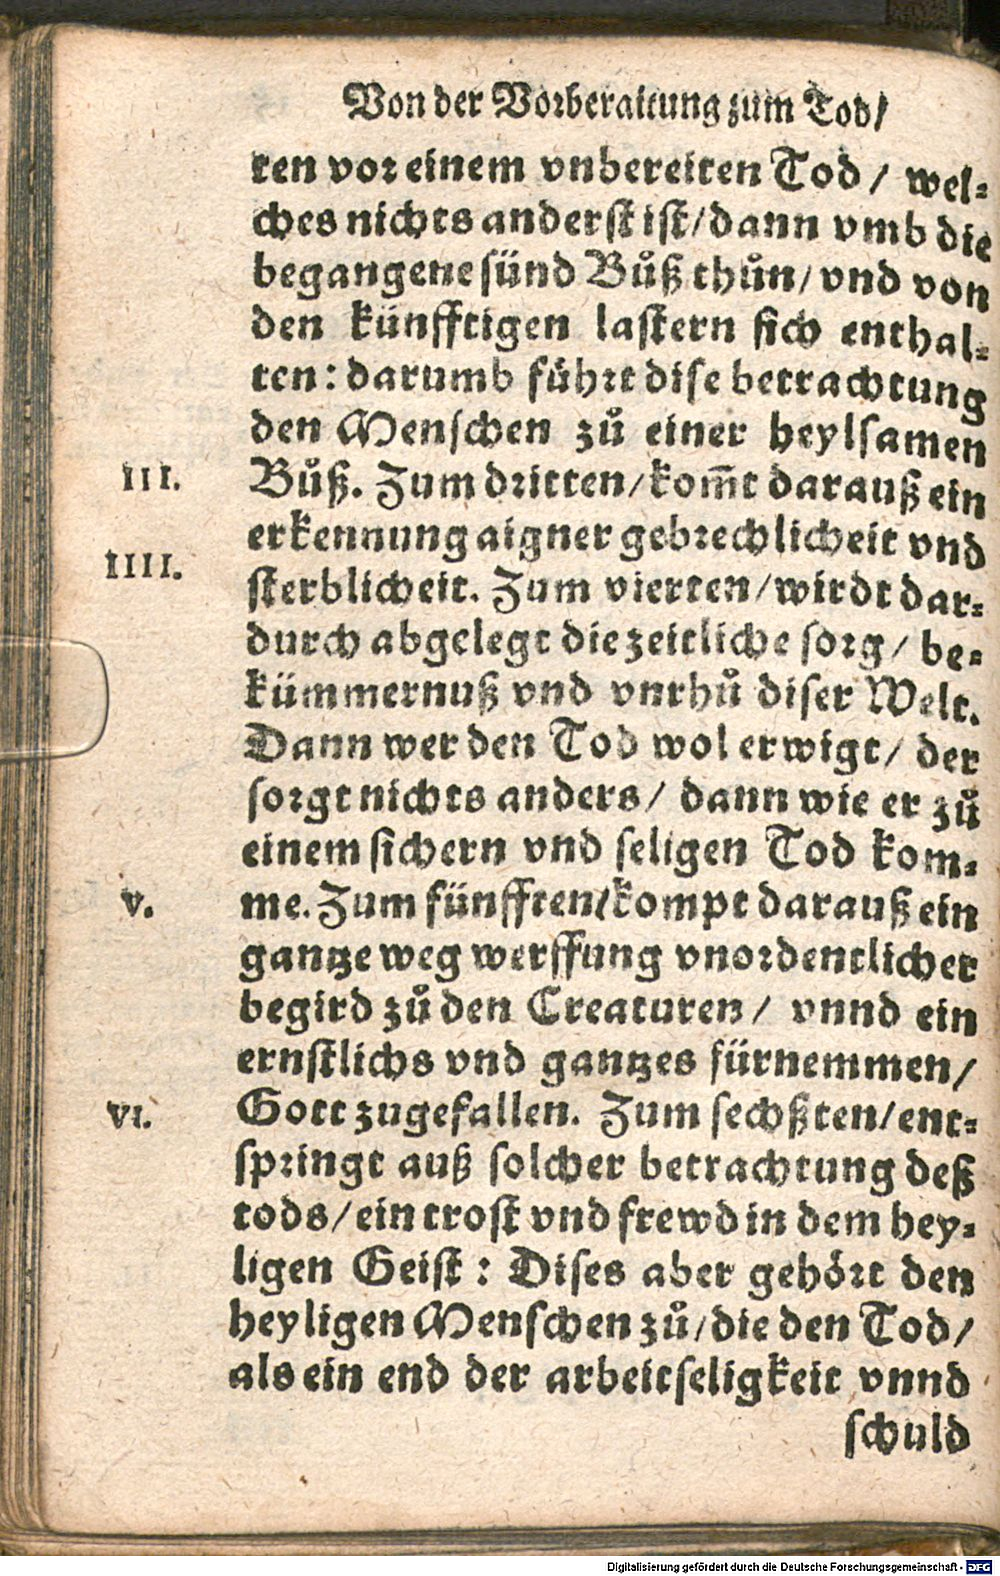 Von der Vorberaitung zum Tod/
ten vor einem vnbereiten Tod / wel-
ches nichts anderst ist/dann vmb die
begangene sünd Bůß thůn/ vnd von
den künfftigen lastern sich enthal-
ten: darumb führt dise betrachtung
den Menschen zů einer heylsamen
III. Bůß. Zum dritten/kom̄t darauß ein
erkennung aigner gebrechlicheit vnd
IIII. sterblicheit. Zum vierten/wirdt dar-
durch abgelegt die zeitliche sorg/ be-
kümmernuß vnd vnrhů diser Welt.
Dann wer den Tod wol erwigt/ der
sorgt nichts anders/ dann wie er zů
einem sichern vnd seligen Tod kom-
V. me. Zum fünfften/kompt darauß ein
gantze weg werffung vnordentlicher
begird zů den Creaturen/ vnnd ein
ernstlichs vnd gantzes fürnemmen/
VI. Gott zugefallen. Zum sechßten/ent-
springt auß solcher betrachtung deß
tods/ein trost vnd frewd in dem hey-
ligen Geist: Dises aber gehört den
heyligen Menschen zů/die den Tod/
als ein end der arbeitseligkeit vnnd
schuld
Digitalisierung gefördert durch die Deutsche Forschungsgemeinschaft - DFG